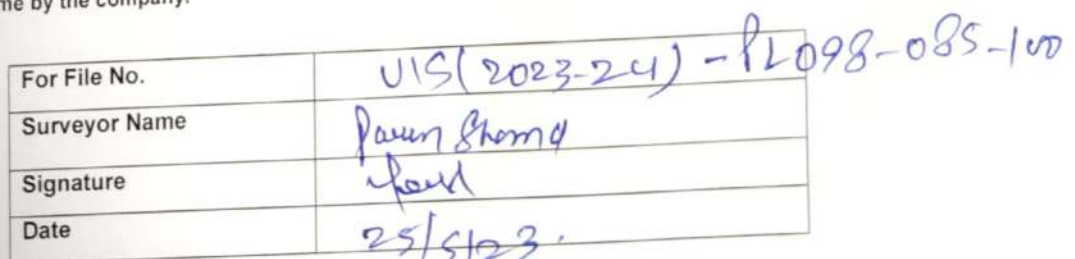 me by the company.
For File No. VIS(2023-24) - PL098-085-100
Surveyor Name
Signature
Date 25/5/23.